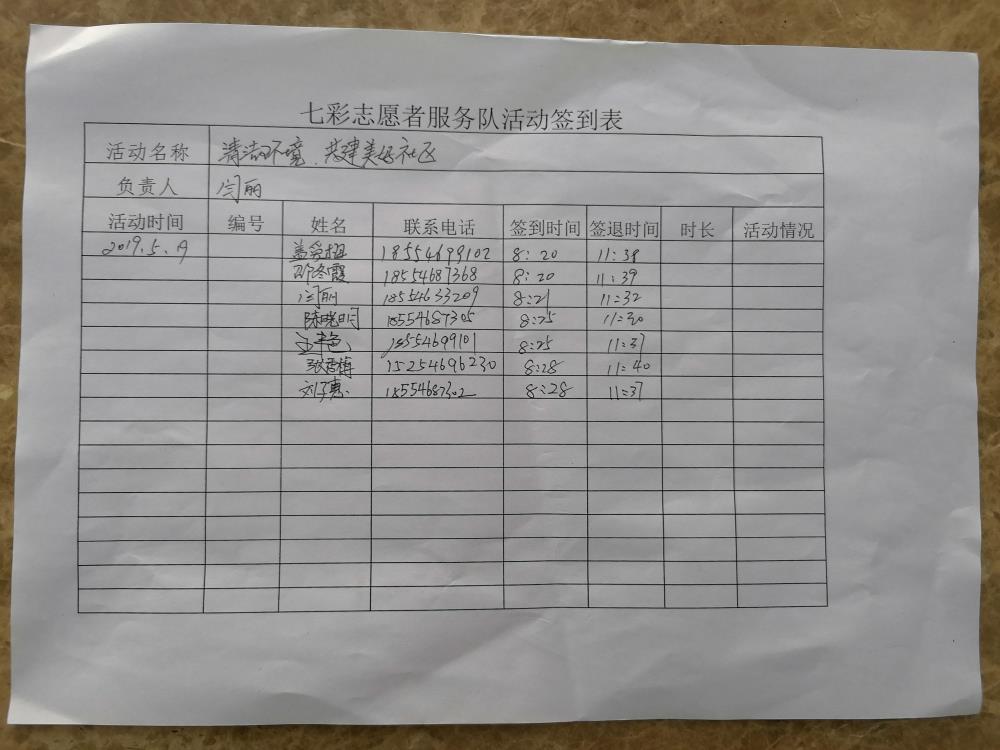 七彩志愿者服务队活动签到表
活动名称 清洁环境、共建美好社区
负责人 闫丽
活动时间 编号 姓名 联系电话 签到时间 签退时间 时长 活动情况
2019.5. 18554699102 8:20 11:38
邵冬霞 18554687368 8:20 11:39
闫丽 18554633209 8:21 11:32
陈晓明 18554687305 8:25 11:30
18554699101 8:25 11:37
15254696230 8:28 11:40
刘子惠 18554687302 8:28 11:37